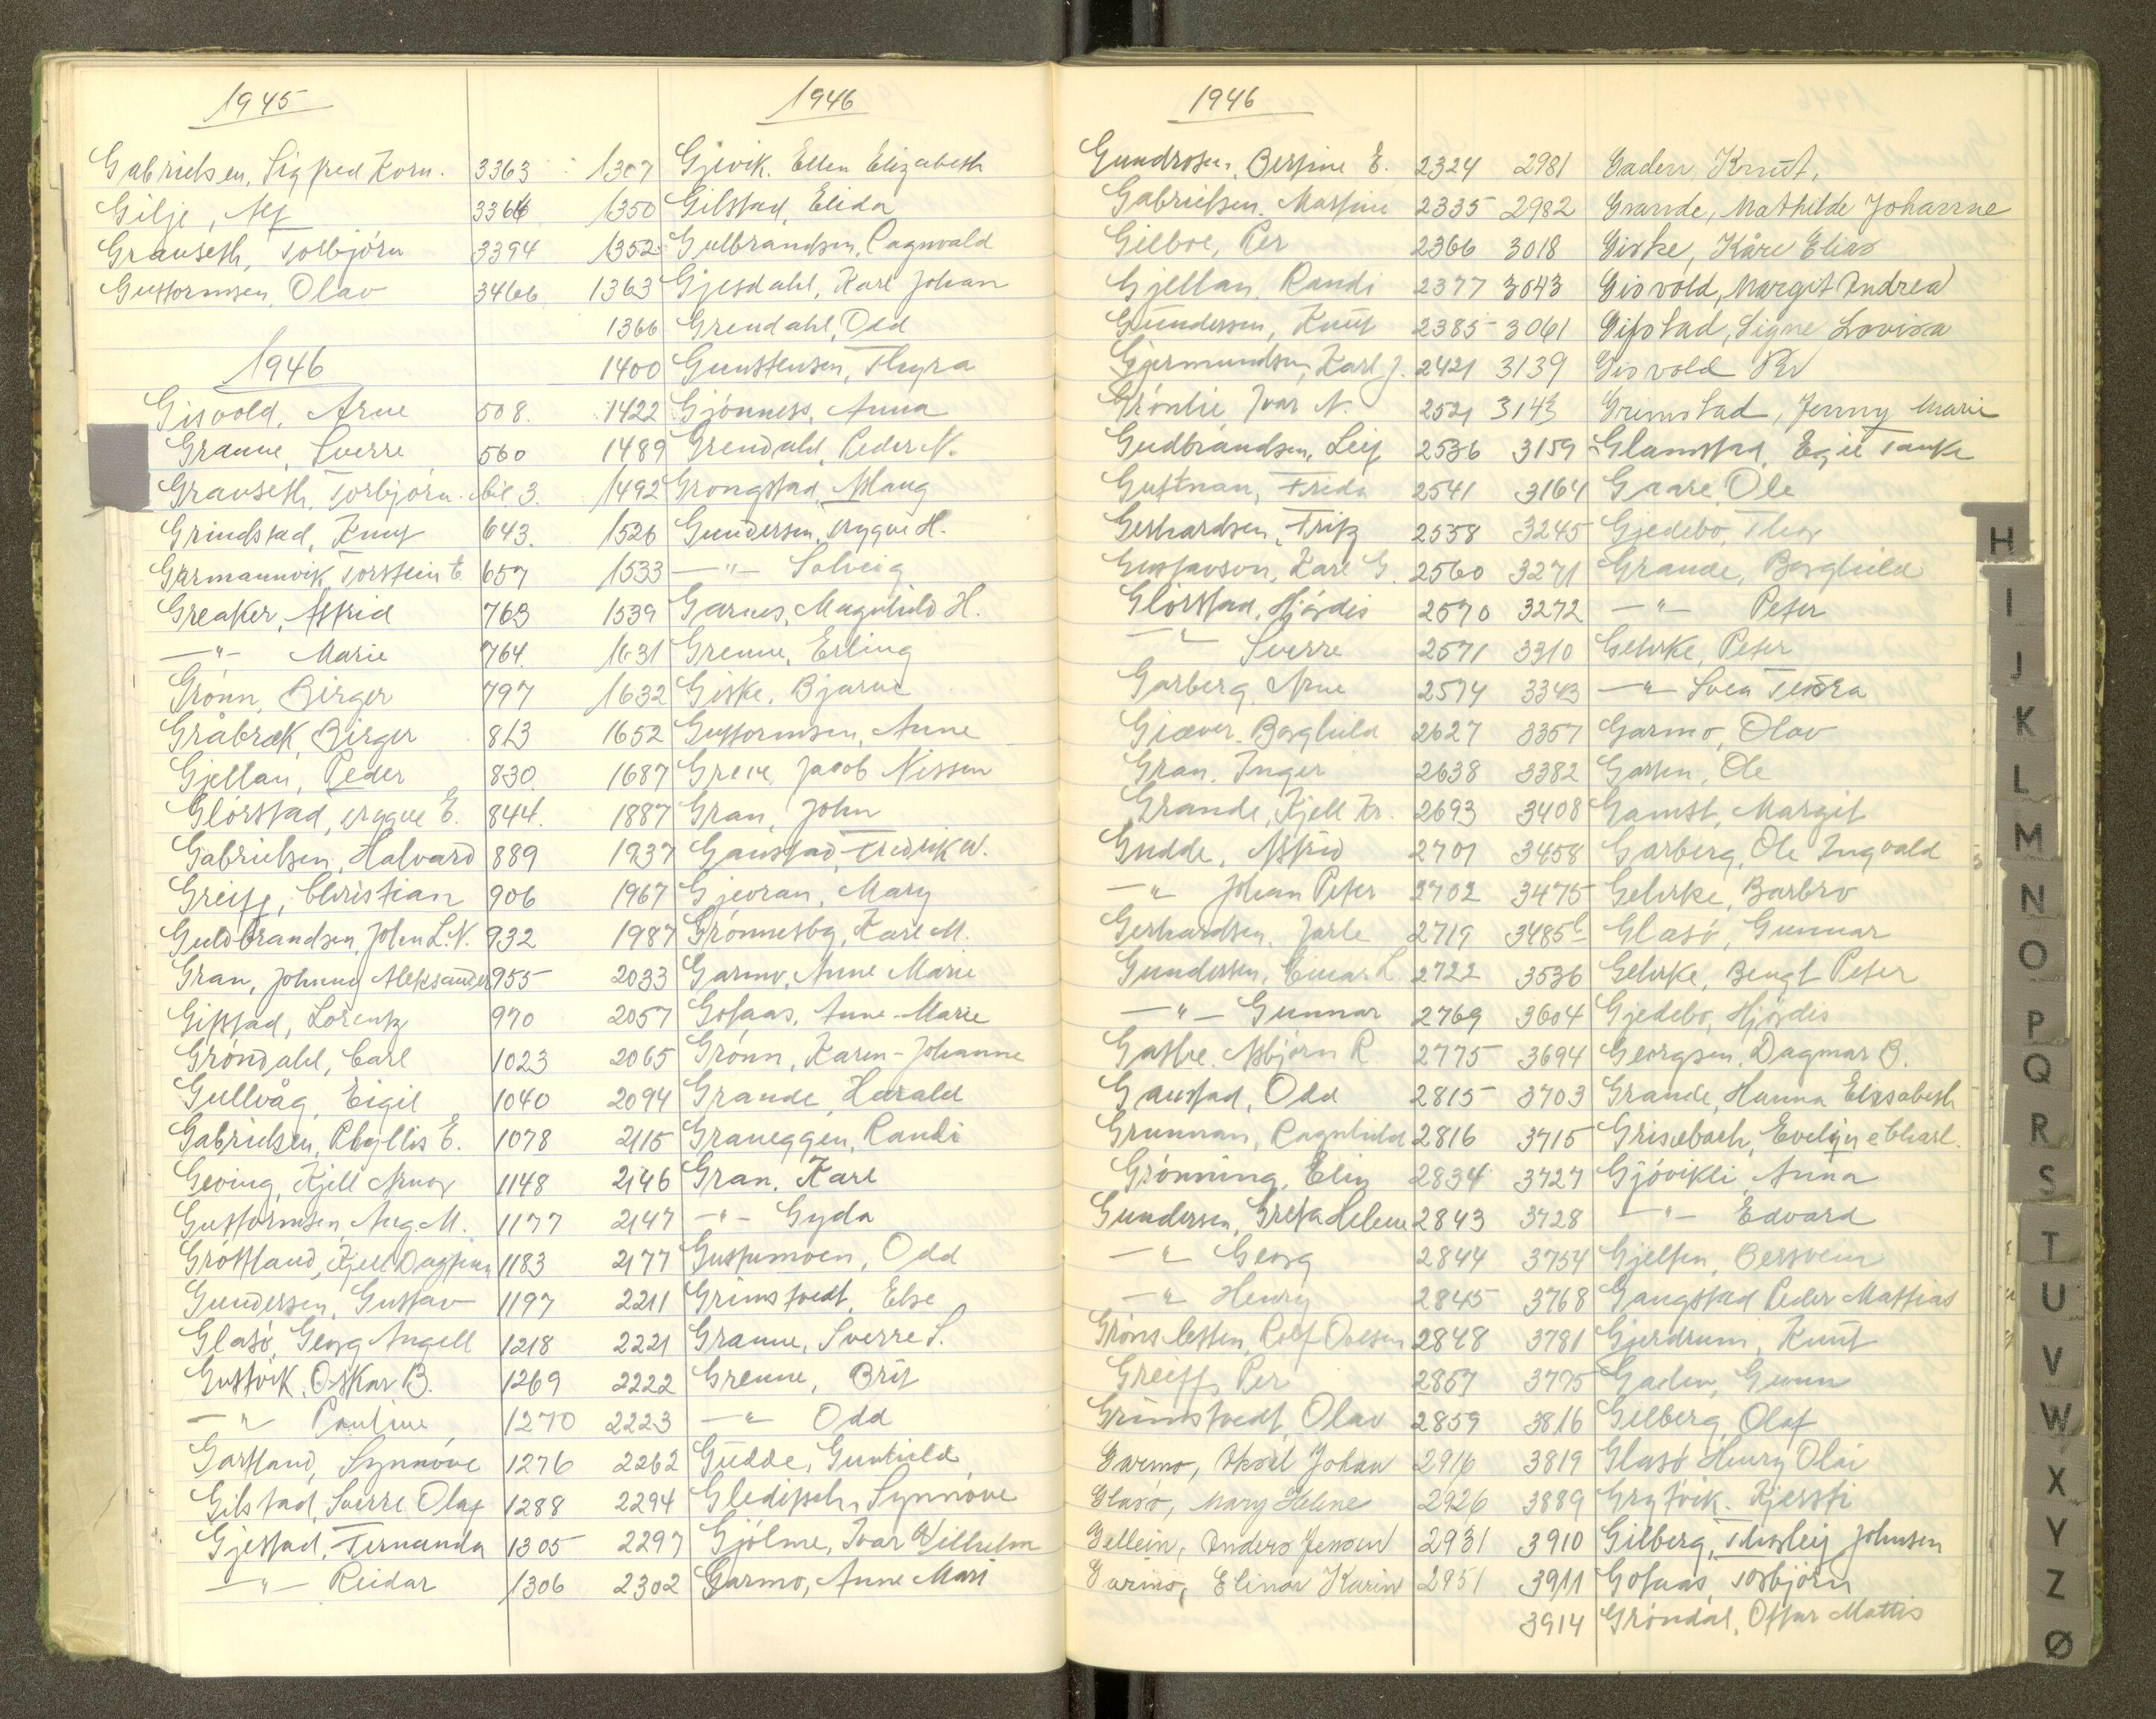 1945
Gabrielsen, Sigfred Korn. 3363
Gilje, Alf 3366
Grauseth, Torbjörn 3394
Guttormsen, Olav 3466
1946
Gisvold, Arne 508.
Granne, Sverre 560
Grauseth, Torbjörn bil. 3.
Grindstad, Knut 643.
Garmannvik, Torstein E. 657
Greaker, Astrid 763
—"— Marie 764.
Grönn, Birger 797
Gråbræk, Birger 813
Gjellan, Peder 830.
Glörstad, Trygve E. 844.
Gabrielsen, Halvard 889
Greiff, Christian 906
Guldbrandsen, John L. N. 932
Gran, Johnny Aleksander 955
Gipstad, Lorentz 970
Gröndahl, Carl 1023
Gullvåg, Eigil 1040
Gabrielsen, Phyllis E. 1078
Geving, Kjell Arnor 1148
Guttormsen, Aug. M. 1177
Gröttland, Kjell Dagfinn 1183
Gundersen, Gustav 1197
Glasö, Georg Angell 1218
Guttvik, Oskar B. 1269
—"— Pauline 1270
Gartland, Synnöve 1276
Gilstad, Sverre Olaf 1288
Gjestad, Fernanda 1305
—"— Reidar 1306
1946
1307 Gjevik, Ellen Elizabeth
1350 Gilstad, Elida
1352 Gulbrandsen, Ragnvald
1363 Gjesdahl, Karl Johan
1366 Grendahl, Odd
1400 Gunstensen, Thyra
1422 Gjönness, Anna
1489 Grendahl, Peder N.
1492 Grongstad, Aslaug
1526 Gundersen, Trygve H.
1533 —"— Solveig
1539 Garnes, Magnhild H.
1631 Grenne, Erling
1632 Giske, Bjarne
1652 Guttormsen, Anne
1687 Greve, Jacob Nissen
1887 Gran, John
1937 Gaustad, Fredrik W.
1967 Gjevran, Mary
1987 Grönnesby, Kare M.
2033 Garmo, Anne Marie
2057 Gotaas, Anne-Marie
2065 Grönn, Karen-Johanne
2094 Grande, Harald
2115 Graneggen, Randi
2146 Gran, Karl
2147 —"— Gyda
2177 Guttumoen, Odd
2211 Grimstvedt, Else
2221 Granne, Sverre S.
2222 Grenne, Brit
2223 —"— Odd
2262 Gudde, Gunhild
2294 Gleditsch, Synnöve
2297 Gjölme, Ivar Wilhelm
2302 Garmo, Anne Mari
1946
Gundrosen, Bertine E. 2324
Gabrielsen, Martine 2335
Gilboe, Per 2366
Gjellan, Randi 2377
Gundersen, Knut 2385
Gjermundsen, Karl J. 2421
Grönlie, Ivar N. 2521
Gudbrandsen, Leif 2536
Gutman, Freda 2541
Gerhardsen, Fritz 2558
Gustavson, Karl G. 2560
Glörstad, Hjördis 2570
—"— Sverre 2571
Garberg, Arne 2574
Giæver, Borghild 2627
Gran, Inger 2638
Grande, Kjell Kr. 2693
Gudde, Astrid 2701
—"— Johan Peter 2702
Gerhardsen, Jarle 2719
Gundersen, Einar L. 2722
—"— Gunnar 2769
Gathe, Asbjörn R. 2775
Gaustad, Odd 2815
Grunnan, Ragnhild 2816
Grönning, Elin 2834
Gundersen, Greta Helene 2843
—"— Georg 2844
—"— Henry 2845
Grönsletten, Rolf Ovesen 2848
Greiff, Per 2857
Grimstvedt, Olav 2859
Garmo, Aksel Johan 2916
Glasö, Mary Helene 2926
Gellein, Anders Jensen 2931
Garmo, Elinor Karin 2951
2981 Gaden, Knut,
2982 Grande, Mathilde Johanne
3018 Giske, Kåre Elias
3043 Gisvold, Margit Andrea
3061 Gipstad, Signe Lovisa
3139 Gisvold Per
3143 Grimstad, Jenny Marie
3159 Glamstad, Egil Tanke
3164 Graare, Ole
3245 Gjedebo, Thor
3271 Grande, Borghild
3272 —"— Peter
3310 Gehrke, Peter
3343 —"— Svea Teodora
3357 Garmo, Olav
3382 Garten, Ole
3408 Gamst, Margit
3458 Garberg, Ole Ingvald
3475 Gehrke, Barbro
3485b Glasö, Gunnar
3536 Gehrke, Bengt Peter
3604 Gjedebo, Hjördis
3694 Georgsen, Dagmar B.
3703 Grande, Hanna Elisabeth
3715 Grisebach, Evelyn e Charl.
3727 Gjövikli, Anna
3728 —"— Edvard
3754 Gjelten, Bersvein
3768 Gangstad Peder Mattias
3781 Gjerdrum, Knut
3795 Gaden, Gunn
3816 Gilberg, Olaf
3819 Glasö Henry Olai
3889 Grytvik, Kjersti
3910 Gilberg, Thorleif Johnsen
3911 Gotaas, Torbjörn
3914 Gröndal, Ottar Mattis
H
I
J
K
L
M
N
O
P
Q
R
S
T
U
V
W
X
Y
Z
Ø